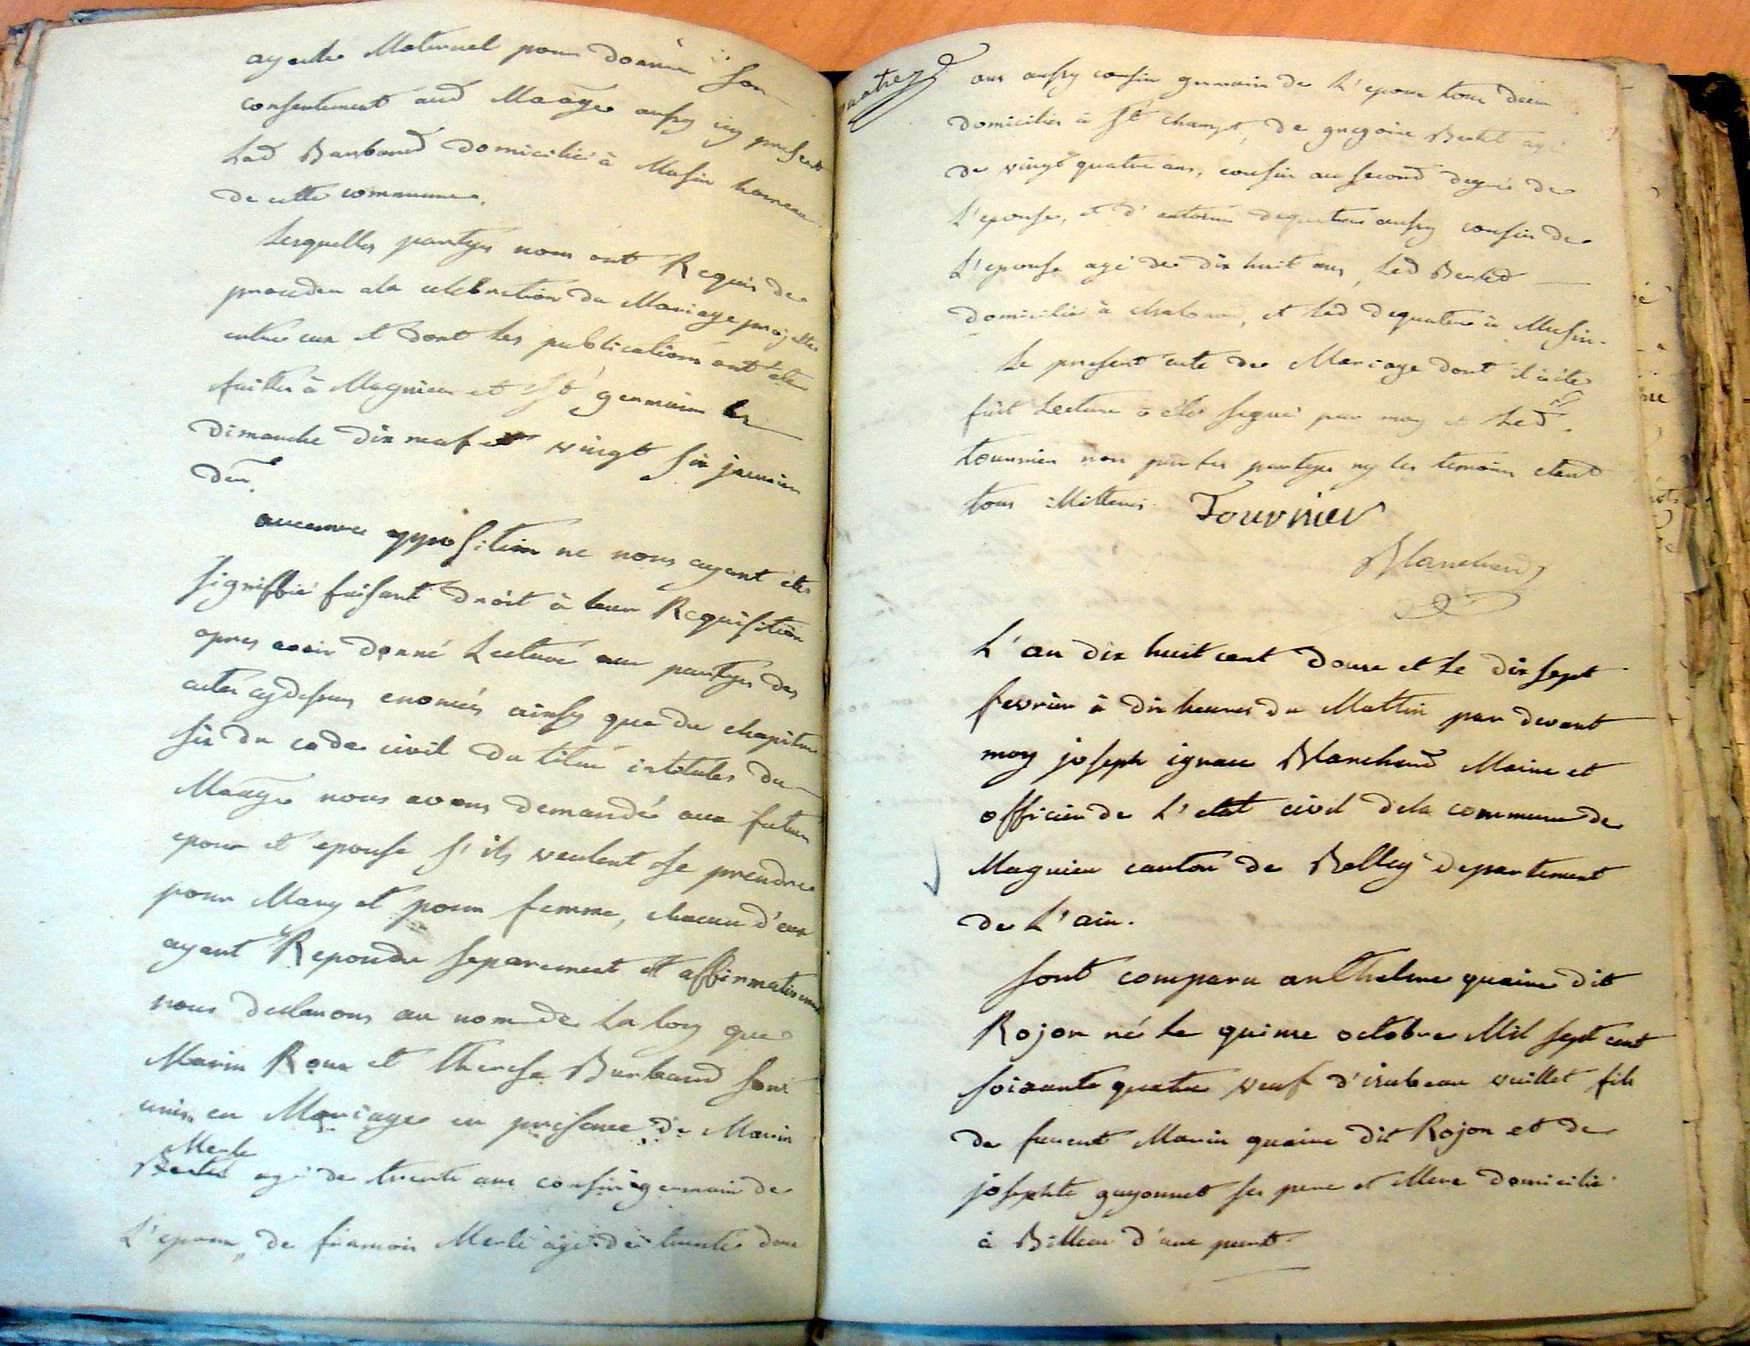 ayeulle Maternel pour donner son
consentement aud Maãge aussy icy present
Led Burbaud domicilié à Musin hameau
de cette commune.
Lesquelles partyes nous ont Requis de
proceder ala celebration du Mariage projetté
entre eux et dont les publications ont été
faittes à Magnieu et St germain les
dimanche dix neuf et vingt six janvier
dẽr
aucunne opposition ne nous ayant été
signiffié faisant droit à leur Requisition
apres avoir donné Lecture aux partyes des
actes cydessus enoncés ainsy que du chapitre
six du code civil du titre intitulés du
Maãge nous avons demandé aux futur
epoux et epouse s'ils veulent se prendre
pour Mary et pour femme, chacun d'eux
ayant Repondu separement et affirmativement
nous declarons au nom de La loy que
Marin Roux et therese Burbaud sont
unis en Mariage en presence de Marin
Merle
agé de trente ans cousin germain de
L'epoux, de francois Merle agé de trente deux
ans aussy cousin germain de L'epoux tous deux
domiciliés à St champt, de gregoire Berlet agé
de vingt quatre ans, cousin au second degré de
L'epouse, et d' dequatre aussy cousin de
L'epouse agé de dix huit ans, Led Berlet
domicilié à , et Led dequatre à Musin.
Le present acte de Mariage dont il a été
fait Lecture a été signé par moy et Led
tournier non par les partyes ny les temoins etant
tous illitteres. Tournier
Blanchard
L'an dix huit cent douze et le dix sept
fevrier à dix heures du Mattin par devant
moy joseph ignace Blanchard Maire et
officier de L'etat civil dela commune de
Magnieu canton de Belley departement
de L'ain.
sont comparu anthelme quaine dit
Rojon né le quinze octobre Mil sept cent
soixante quatre veuf d'isabeau vuillet fils
de furent Marin quaine dit Rojon et de
josephte guyonnet ses pere et Mere domicilié
à Billieu d'une part.